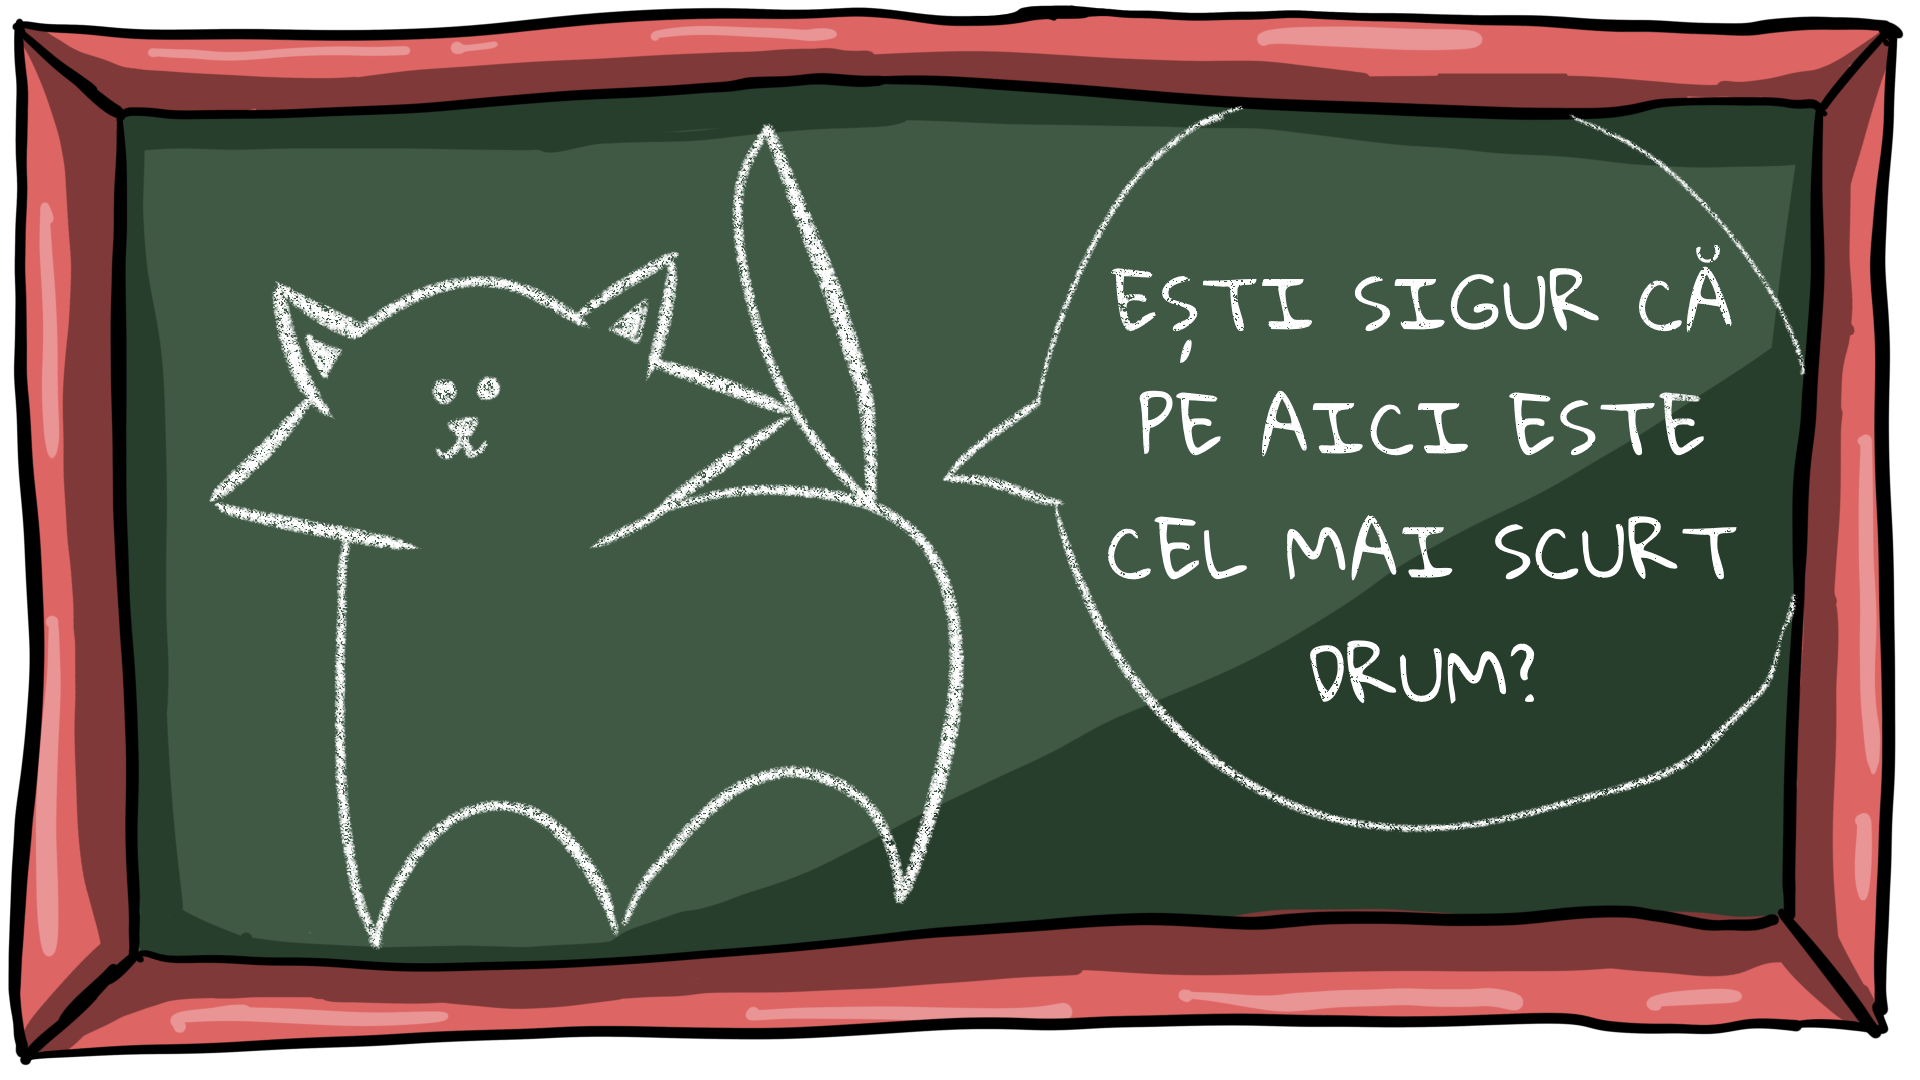 EȘTI SIGUR CĂ
PE AICI ESTE
CEL MAI SCURT
DRUM?